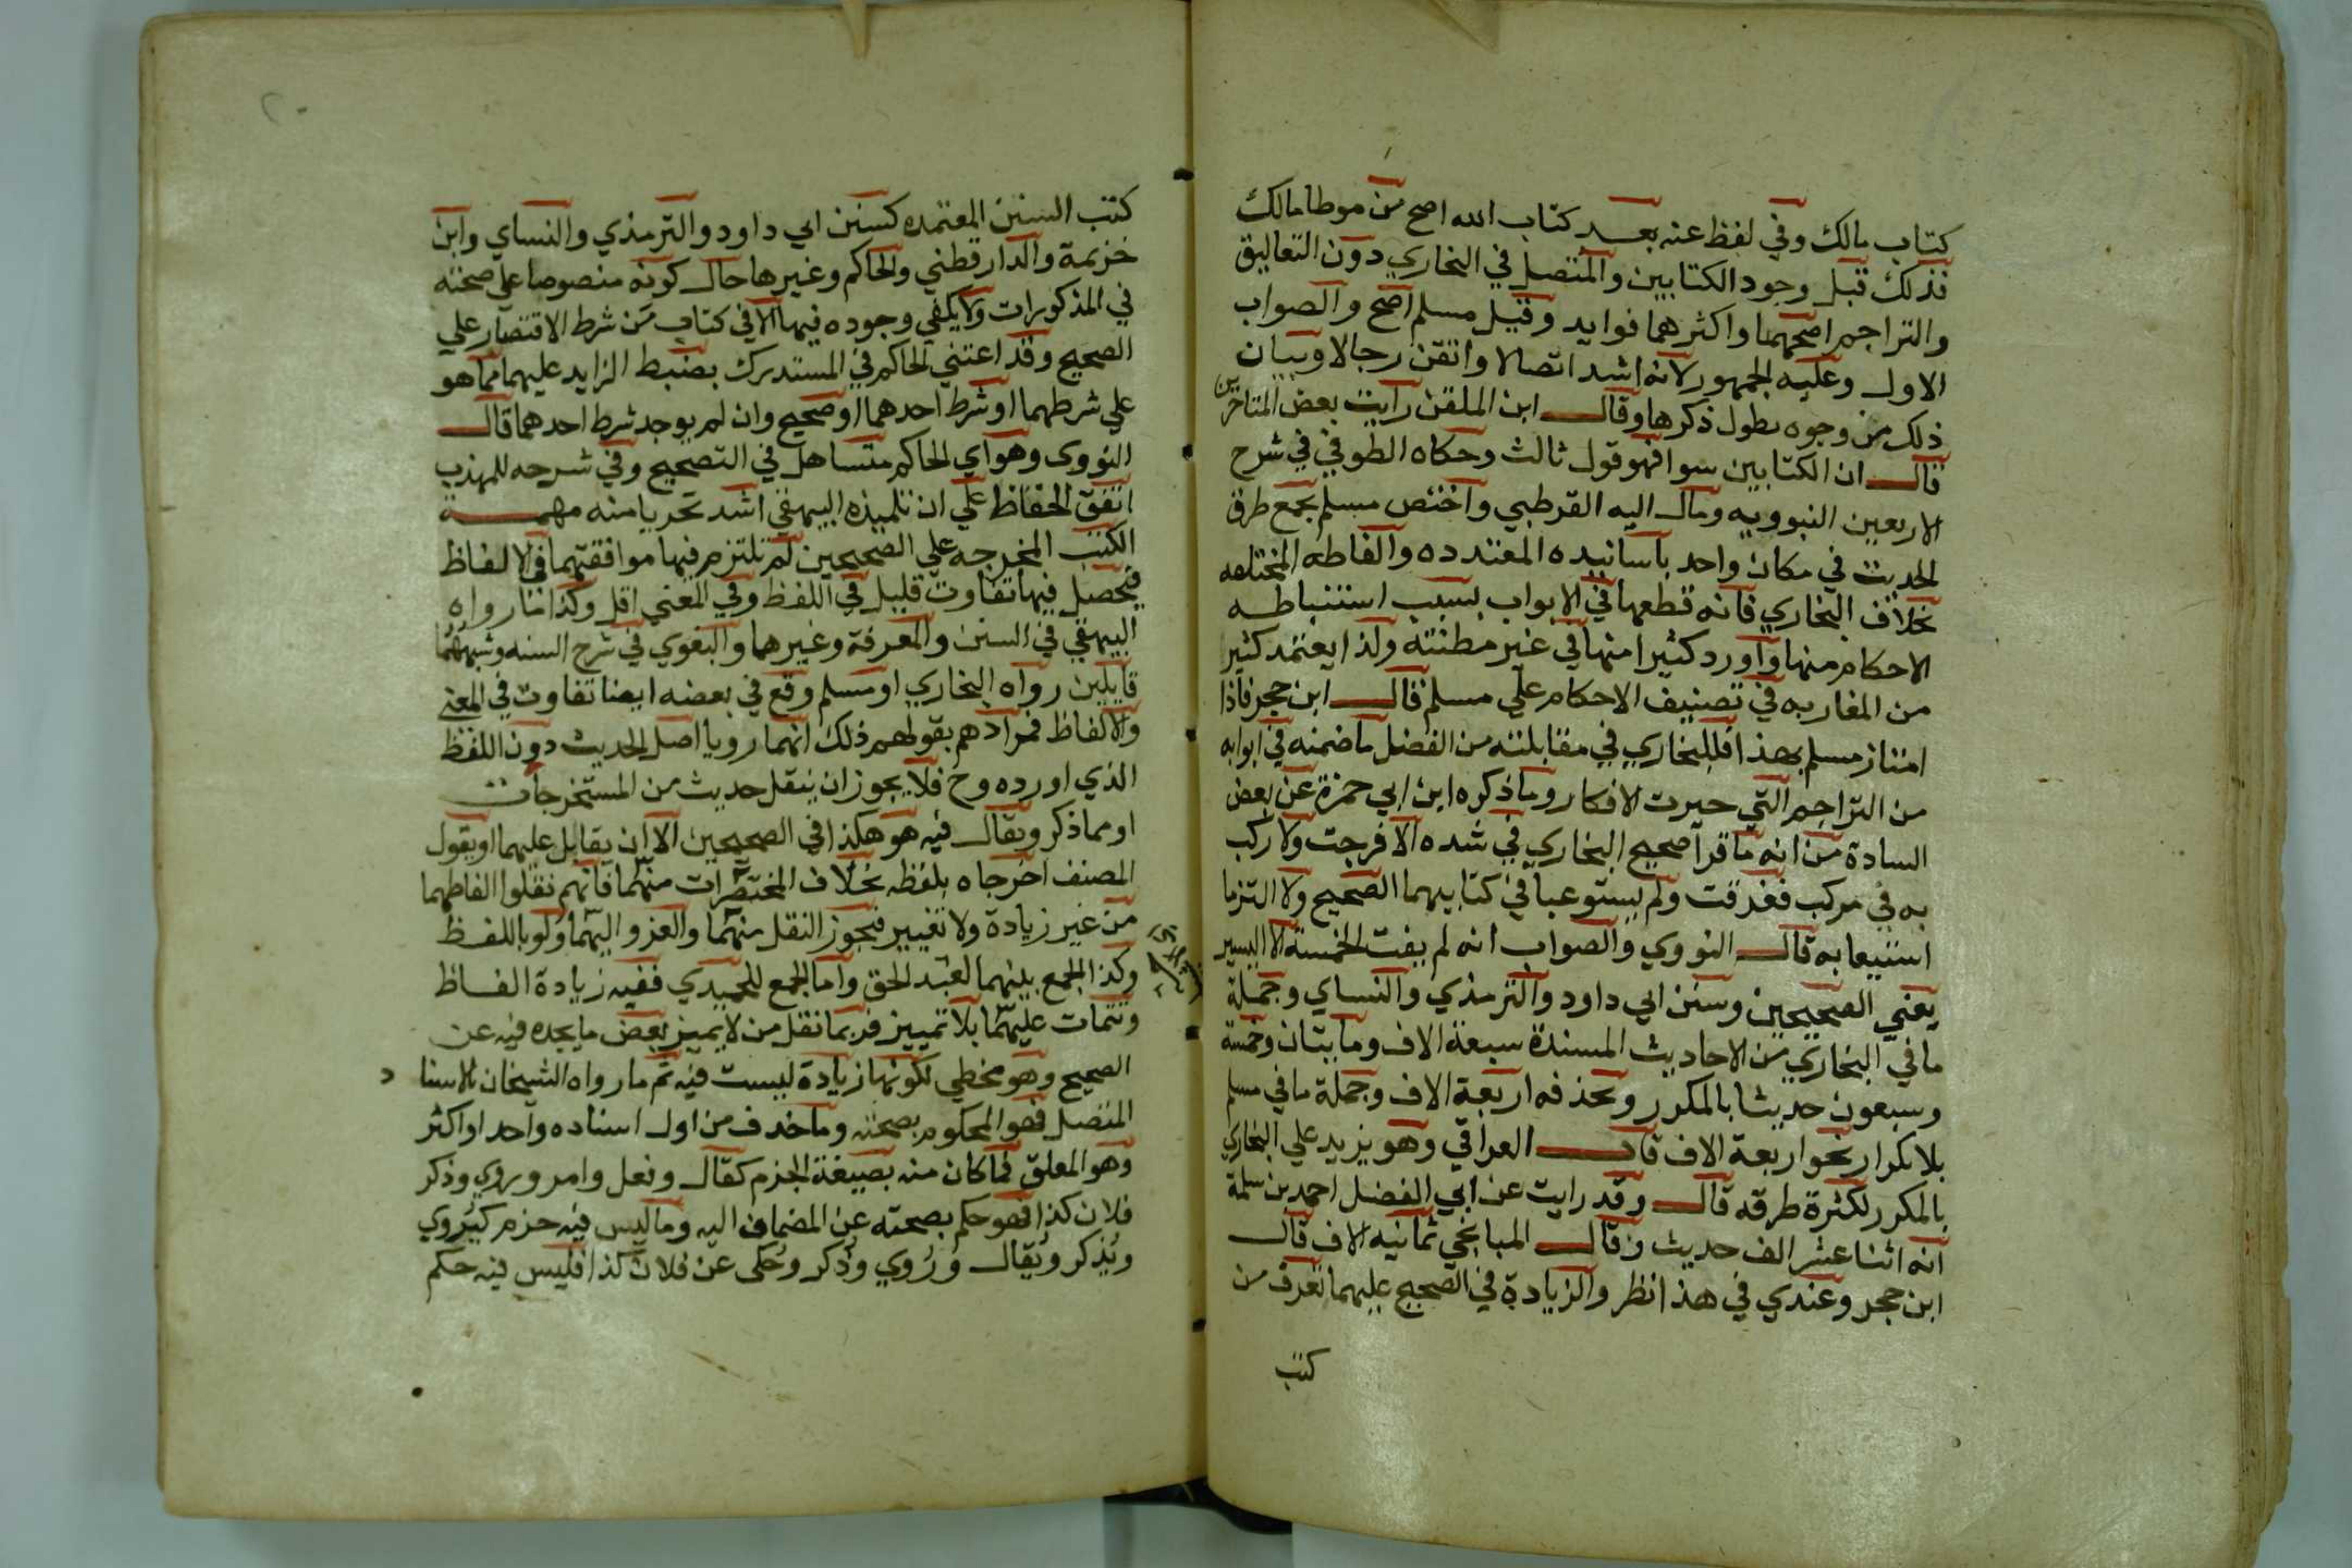 كتاب مالك وفي لفظ عنه بعد كتاب الله اصح من موطا مالك
فذلك قبل وجود الكتابين والمتصل في البخاري دون التعاليق
والتراجم اصحهما واكثرهما فوايد وقيل مسلم اصح والصواب
الاول وعليه الجمهور لانه اشد اتصالا واتقن رجالا وبيان
ذلك من وجوه يطول ذكرها وقال ابن الملقن رايت بعض المتاخرين
قال ان الكتابين سوا فهو قول ثالث وحكاه الطوفي في شرح
الاربعين النبوويه ومال اليه القرطبي واختص مسلم بجمع طرق
الحديث في مكان واحد باسانيده المعتدده والفاظه المختلفه
بخلاف البخاري فانه قطعها في الابواب بسبب استنباطه
الاحكام منها واورد كثيرا منها في غير مظنته ولذا يعتمد كثير
من المغاربه في تصنيف الاحكام علي مسلم قال ابن حجر فاذا
امتاز مسلم بهذا فللبخاري في مقابلته من الفضل ما ضمنه في ابوابه
من التراجم التي حيرت الافكار وما ذكره ابن ابي حمزة عن بعض
السادة من انه ما قرا صحيح البخاري في شده الا فرجت ولا ركب
به في مركب فغرقت ولم يستوعبا في كتابيهما الصحيح ولا التزما
استيعابه قال النووي والصواب انه لم يفت الخمسة الا اليسير
يعني الصحيحين وسنن ابي داود والترمذي والنساي وجملة
ما في البخاري من الاحاديث المسندة سبعة الاف ومايتان وخمسة
وسبعون حديثا بالمكرر وبحذفه اربعة الاف وجملة ما في مسلم
بلا تكرار نحو اربعة الاف قال العراقي وهو يزيد علي البخاري
بالمكرر لكثرة طرقه قال وقد رايت عن ابي الفضل احمد بن سلمة
انه اثنا عشر الف حديث وقال الميانجي ثمانيه الاف قال
ابن حجر وعندي في هذا نظر والزيادة في الصحيح عليهما تعرف من
كتب
كتب السنن المعتمده كسنن ابي داود والترمذي والنساي وابن
خزيمة والدارقطني والحاكم وغيرها حال كونه منصوصا علي صحته
في المذكورات ولا يكفي وجوده فيها الا في كتاب من شرط الاقتصار علي
الصحيح وقد اعتني الحاكم في المستدرك بضبط الزايد عليهما مما هو
علي شرطهما او شرط احدهما او صحيح وان لم يوجد شرط احدهما قال
النووي وهو اي الحاكم متساهل في التصحيح وفي شرحه للمهذب
اتفق الحفاظ علي ان تلميذه البيهقي اشد تحريا منه مهمة
الكتب المخرجه علي الصحيحين لم تلتزم فيها موافقتهما في الالفاظ
فيحصل فيها تفاوت قليل في اللفظ وفي المعني اقل وكذا ما رواه
البيهقي في السنن والمعرفة وغيرهما والبغوي في شرح السنه وشبههما
قايلين رواه البخاري او مسلم وقع في بعضه ايضا تفاوت في المعني
والالفاظ فمرادهم بقولهم ذلك انهما رويا اصل الحديث دون اللفظ
الذي اورده وح فلا يجوز ان ينقل حديث من المستخرجات
او مما ذكر ويقال فيه هو هكذا في الصحيحين الا ان يقابل عليهما او يقول
المصنف اخرجاه بلفظه بخلاف المختصرات منهما فانهم نقلوا الفاظهما
من غير زيادة ولا تغيير فيجوز النقل منهما والعزو اليهما ولو باللفظ
وكذا الجمع بينهما لعبد الحق واما الجمع للحميدي ففيه زيادة الفاظ
وتتمات عليهما بلا تمييز فربما نقل من لا يميز بعض ما يجده فيه عن
الصحيح وهو مخطي لكونها زيادة ليست فيه ثم ما رواه الشيخان بالاسناد
المتصل فهو المحكوم بصحته وما حذف من اول اسناده واحد او اكثر
وهو المعلق فما كان منه بصيغة الجزم كقال وفعل وامر وروي وذكر
فلان كذا فهو حكم بصحته عن المضاف اليه وما ليس فيه جزم كيروي
ويذكر ويقال وروي وذكر وحكي عن فلان كذا فليس فيه حكم